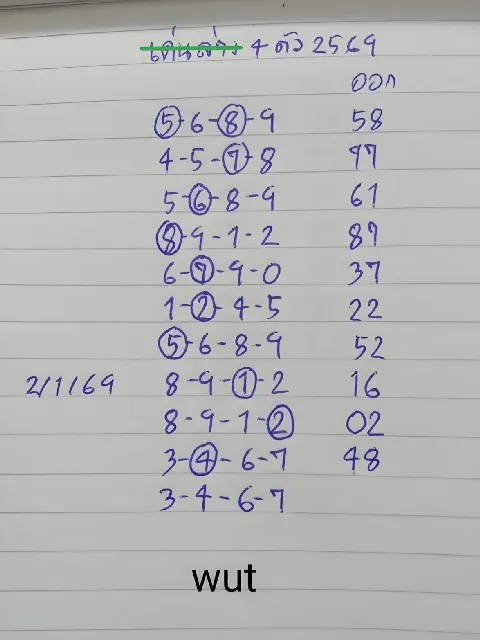 เด่นล่าง 4 ตัว 2569
ออก
5-6-8-9 58
4-5-7-8 77
5-6-8-9 61
8-9-1-2 89
6-7-9-0 37
1-2-4-5 22
5-6-8-9 52
2/1/69 8-9-1-2 16
8-9-1-2 02
3-4-6-7 48
3-4-6-7
wut